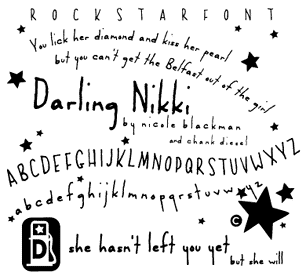 ROCKSTARFONT
You lick her diamond and kiss her pearl
but you can't get the Belfast out of the girl
Darling Nikki
by nicole blackman
and chank diesel
ABCDEFGHIJKLMNOPQRSTUVWXYZ
abcdefghijklmnopqrstuvwxyz
©
D
she hasn't left you yet
but she will